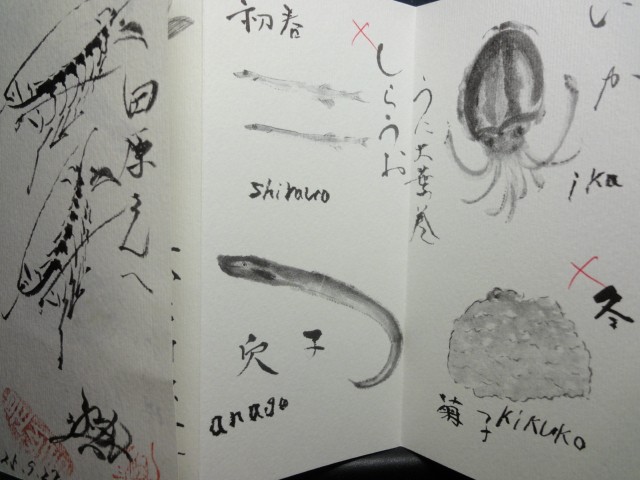 いか
ika
うに大葉巻
冬
菊子
kikuko
初春
しらうお
shirauo
穴子
anago
田原さんへ